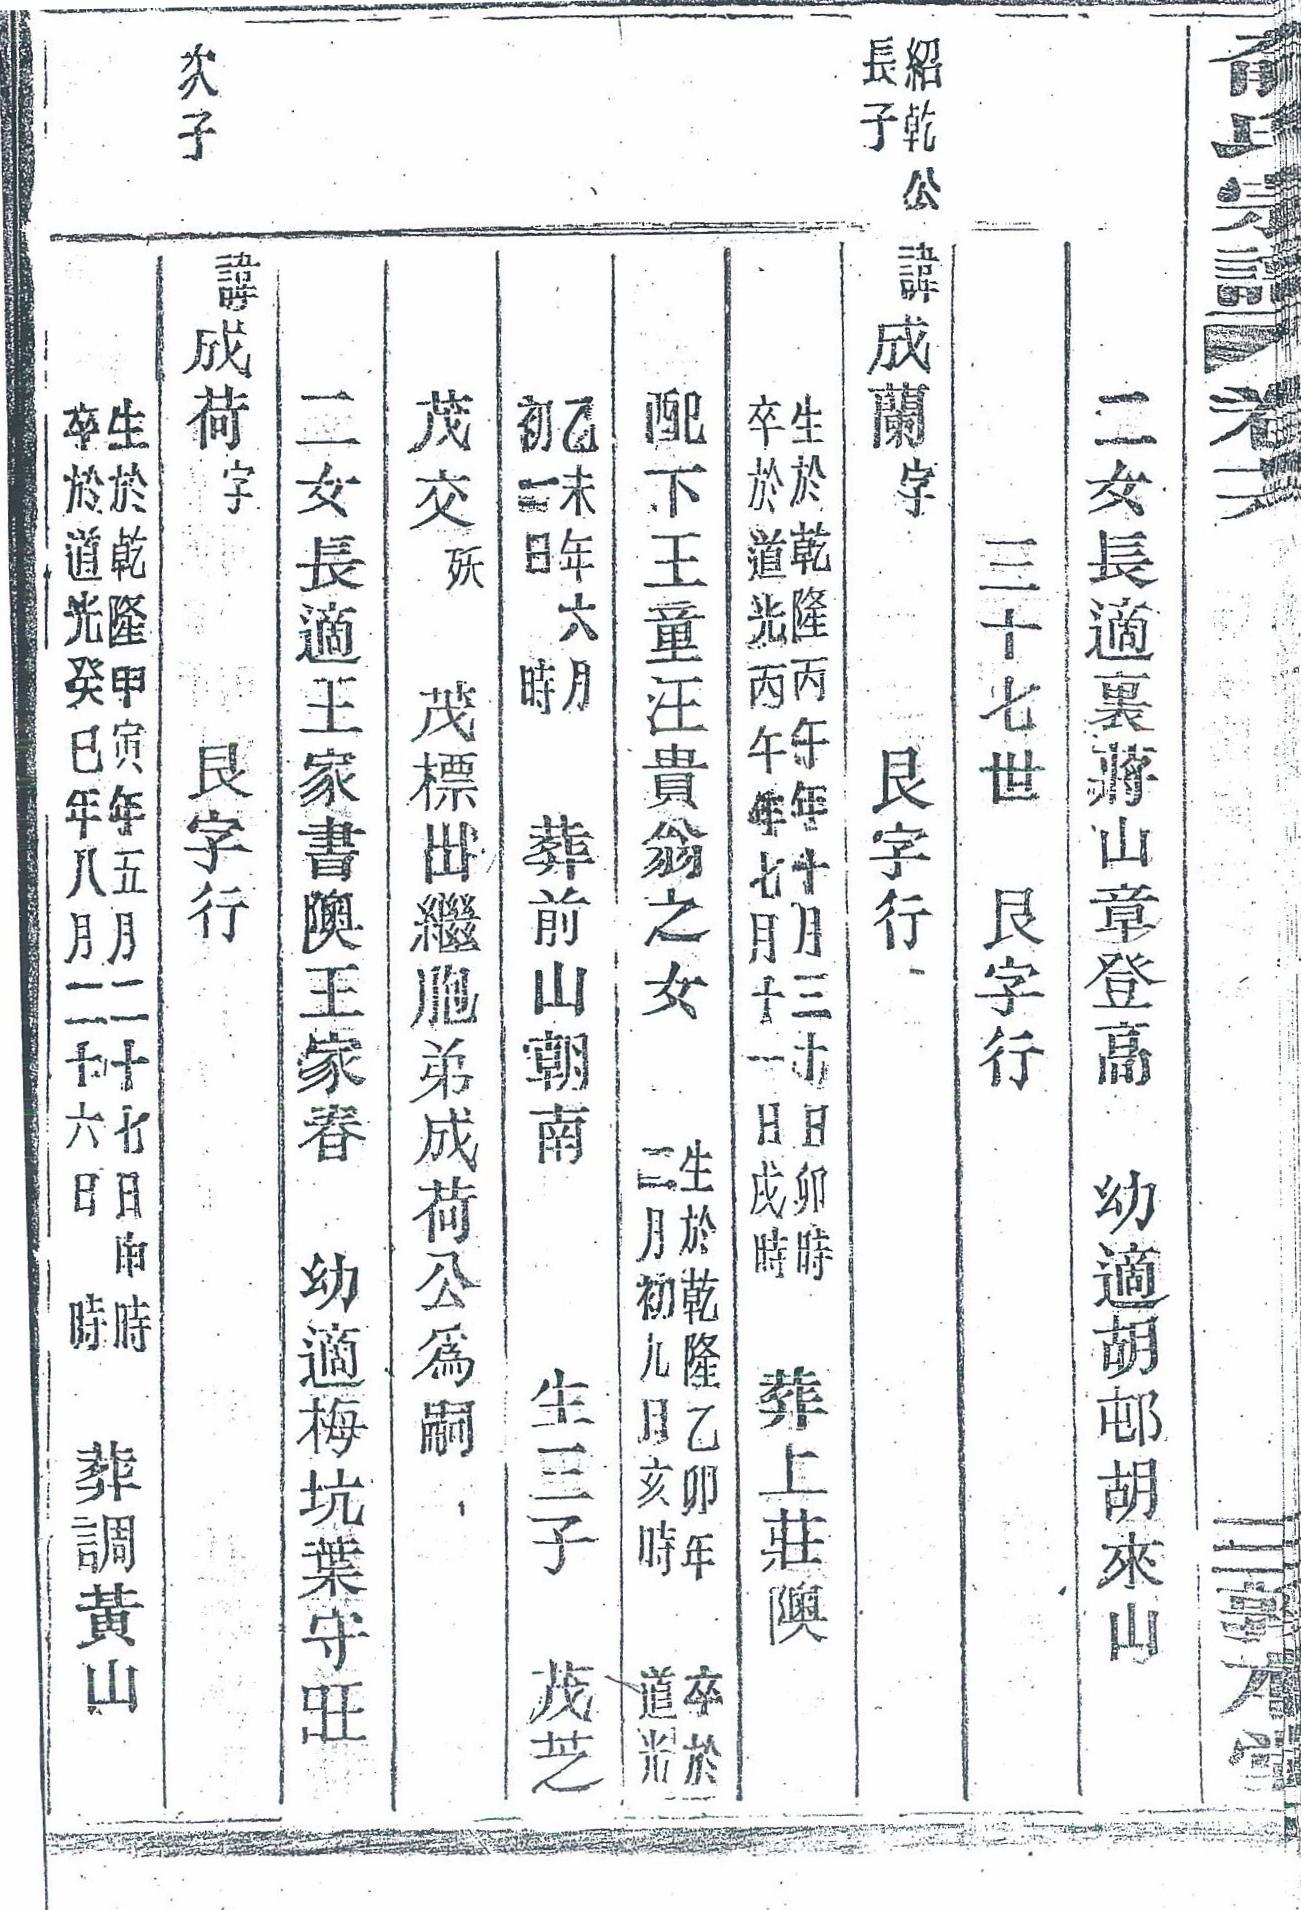 俞氏宗譜 卷六
二女長適裏蔣山章登高 幼適胡邨胡來山
三十七世 艮字行
紹乾公
長子
諱成蘭字 艮字行
生於乾隆丙午年十月三十日卯時
卒於道光丙午年七月十一日戌時
葬上莊隩
配下王童汪貴翁之女
生於乾隆乙卯年
二月初九日亥時
卒於
道光
乙未年六月
初二日 時
葬前山朝南 生三子 茂芝
茂交 殀 茂標出繼胞弟成荷公為嗣
二女長適王家書隩王家春 幼適梅坑葉守旺
次子
諱成荷字 艮字行
生於乾隆甲寅年五月二十七日申時
卒於道光癸巳年八月二十六日 時
葬調黃山